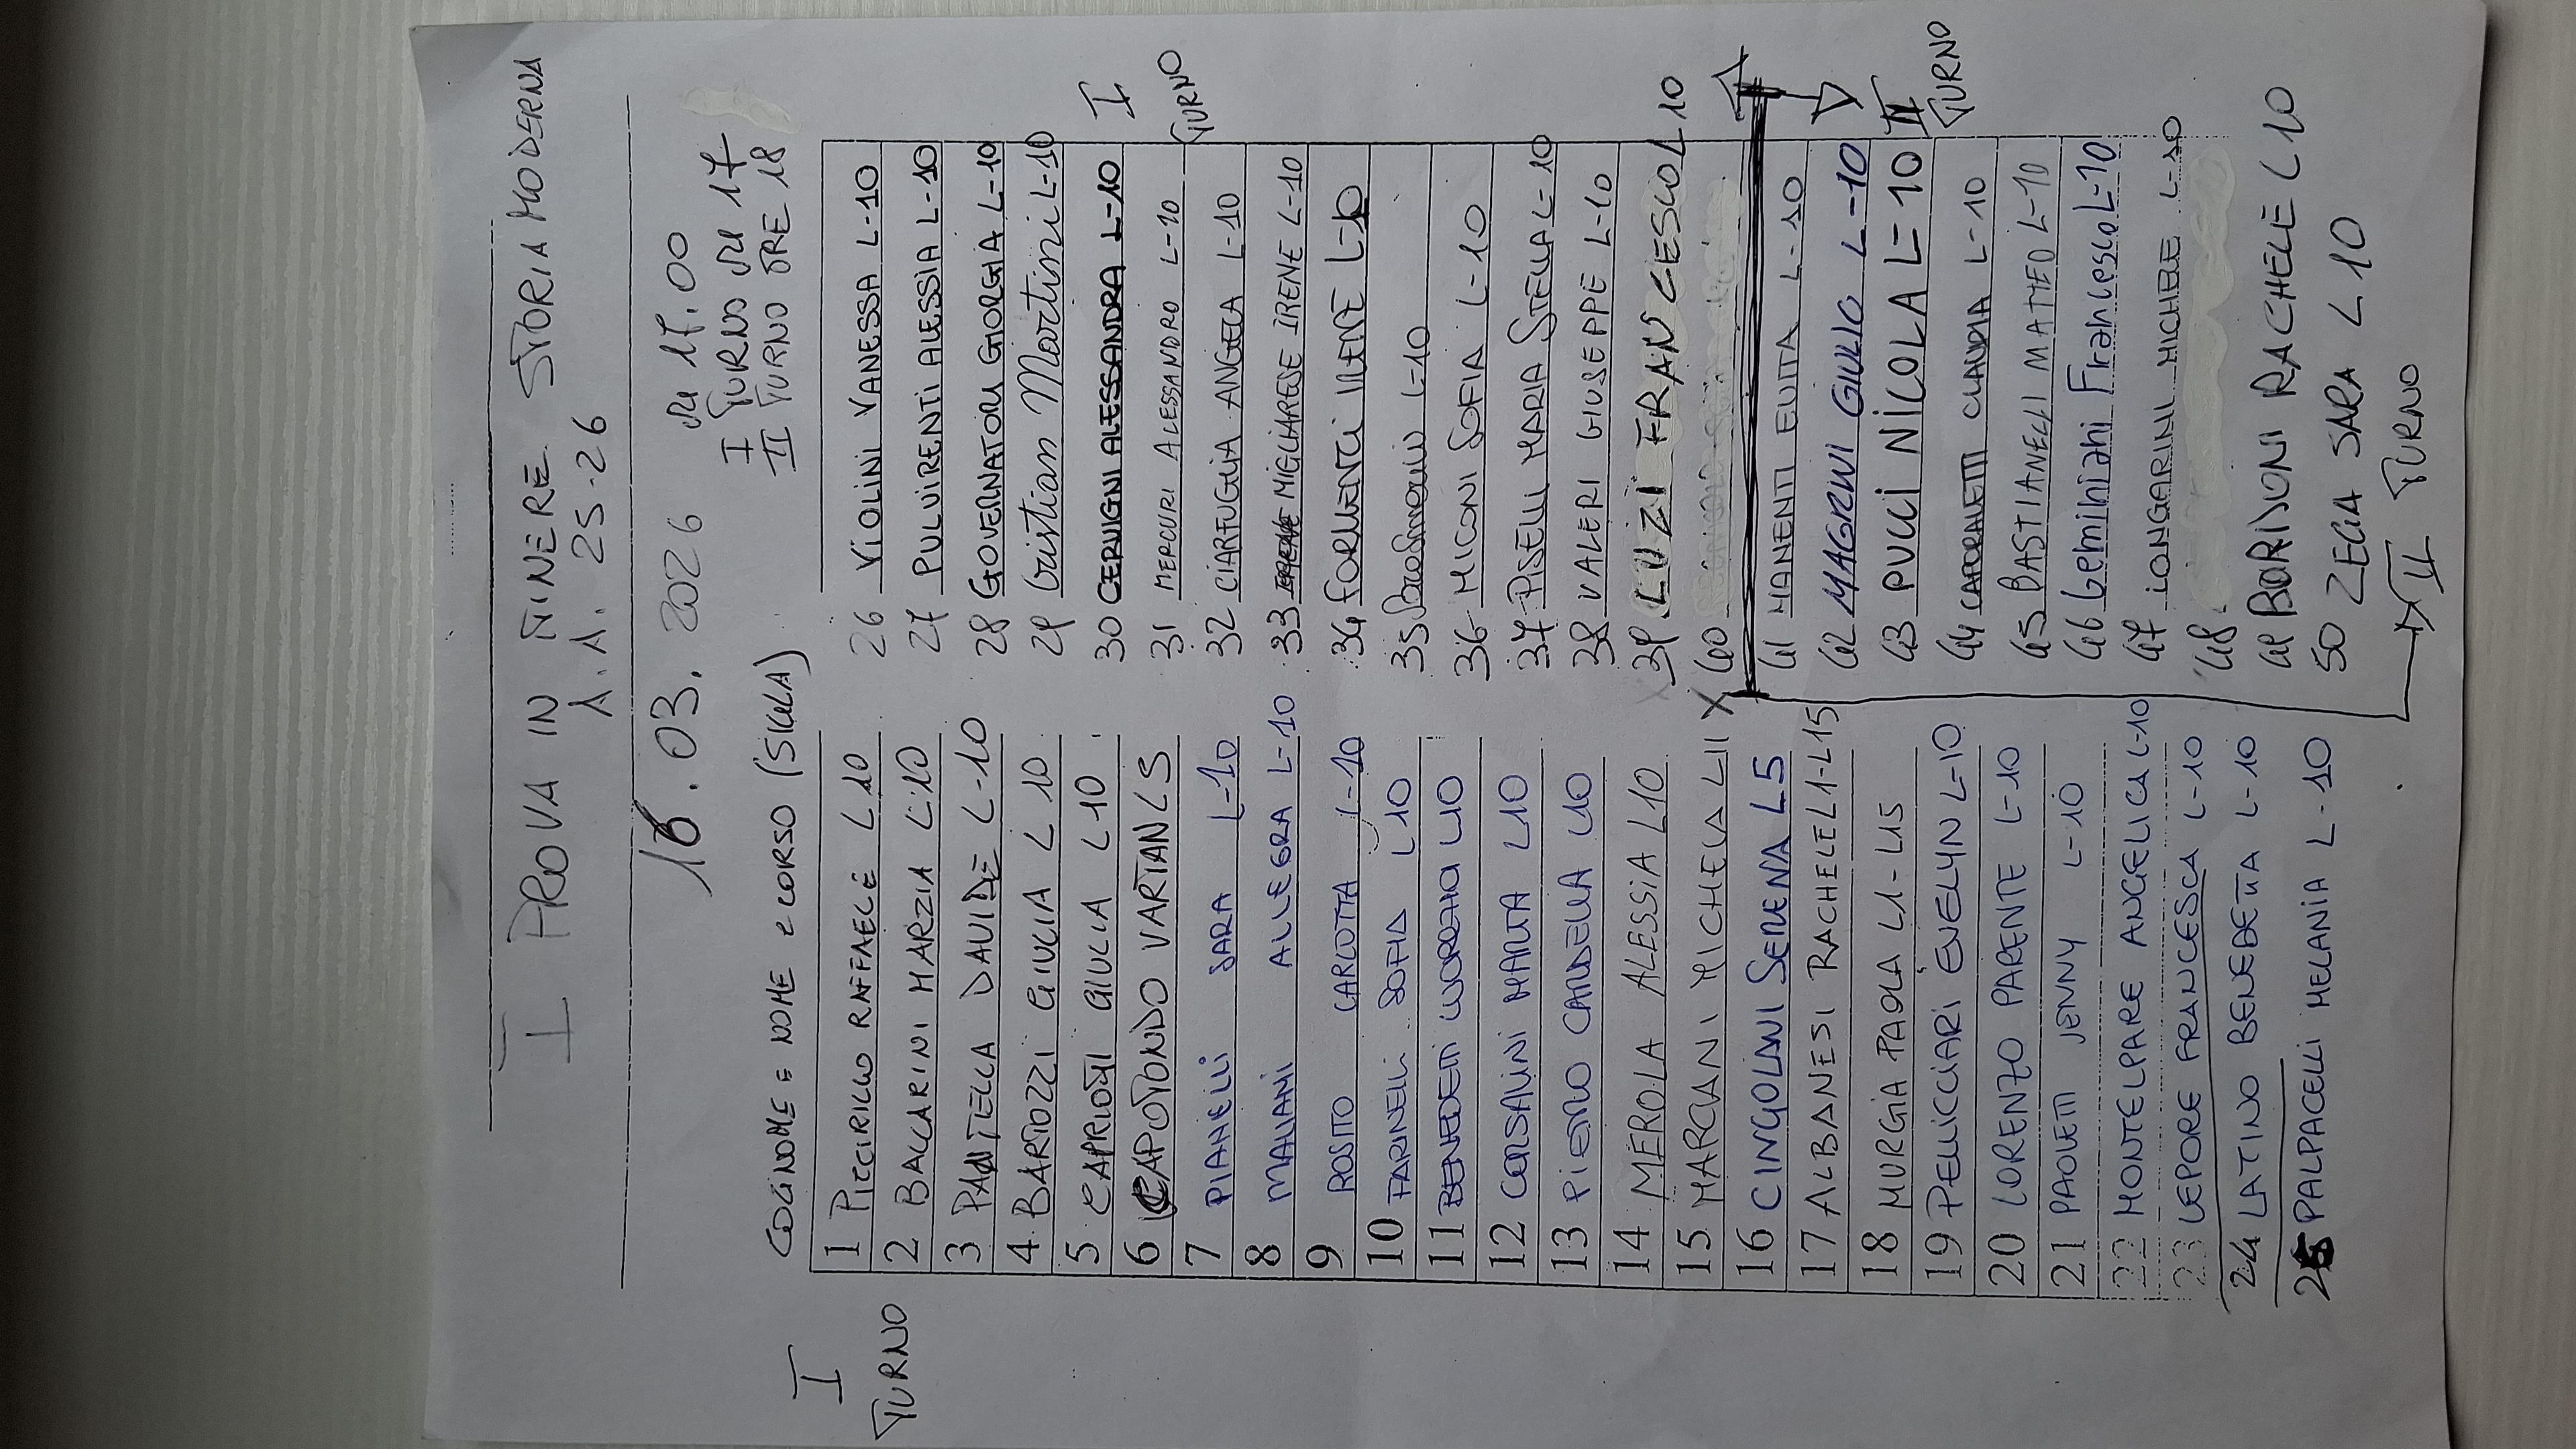 I PROVA IN ITINERE STORIA MODERNA
A.A. 25-26
16.03.2026 ore 17.00
I TURNO ore 17
II TURNO ORE 18
COGNOME e NOME e CORSO (SIGLA)
I TURNO
1 PICCIRILLO RAFFAELE L10
2 BACCARINI MARZIA L-10
3 PANTELLA DAVIDE L-10
4 BARTOZZI GIULIA L10
5 CAPRIOTTI GIULIA L10
6 CAPOTONDO VARTAN L5
7 PIANELLI SARA L-10
8 MALVANI ALLEGRA L-10
9 ROSITO CARLOTTA L-10
10 FARINELLI SOFIA L10
11 BENEDETTI LUCREZIA L10
12 CORSALINI MARTA L10
13 PIERO CARDELLA L10
14 MEROLA ALESSIA L10
15 MARCIANI MICHELA L11 X
16 CINGOLANI SERENA L5
17 ALBANESI RACHELE L1-L15
18 MURGIA PAOLA L1-L15
19 PELLICCIARI EVELYN L-10
20 LORENZO PARENTE L-10
21 PAOLETTI JENNY L-10
22 MONTELPARE ANGELICA L-10
23 LEPORE FRANCESCA L-10
24 LATINO BENEDETTA L-10
25 PALPACELLI MELANIA L-10
26 VIOLINI VANESSA L-10
27 PULVIRENTI ALESSIA L-10
28 GOVERNATORI GIORGIA L-10
29 Cristian Martini L-10
30 CERVIGNI ALESSANDRA L-10
I TURNO
31 MERCURI ALESSANDRO L-10
32 CIARFUGLIA ANGELA L-10
33 MIGLIARESE IRENE L-10
34 FORMENTI IRENE L-10
35 L-10
36 MICONI SOFIA L-10
37 PISELLI MARIA STELLA L-10
38 VALERI GIUSEPPE L-10
39 LUZI FRANCESCO L10
40
41 MANENTI EVITA L-10
42 MAGRINI GIULIO L-10
43 PUCCI NICOLA L-10
II TURNO
44 CAPORALETTI CLAUDIA L-10
45 BASTIANELLI MATTEO L-10
46 Geminiani Francesco L-10
47 LONGARINI MICHELE L-10
48
49 BORDONI RACHELE L10
50 ZEGA SARA L10
II TURNO